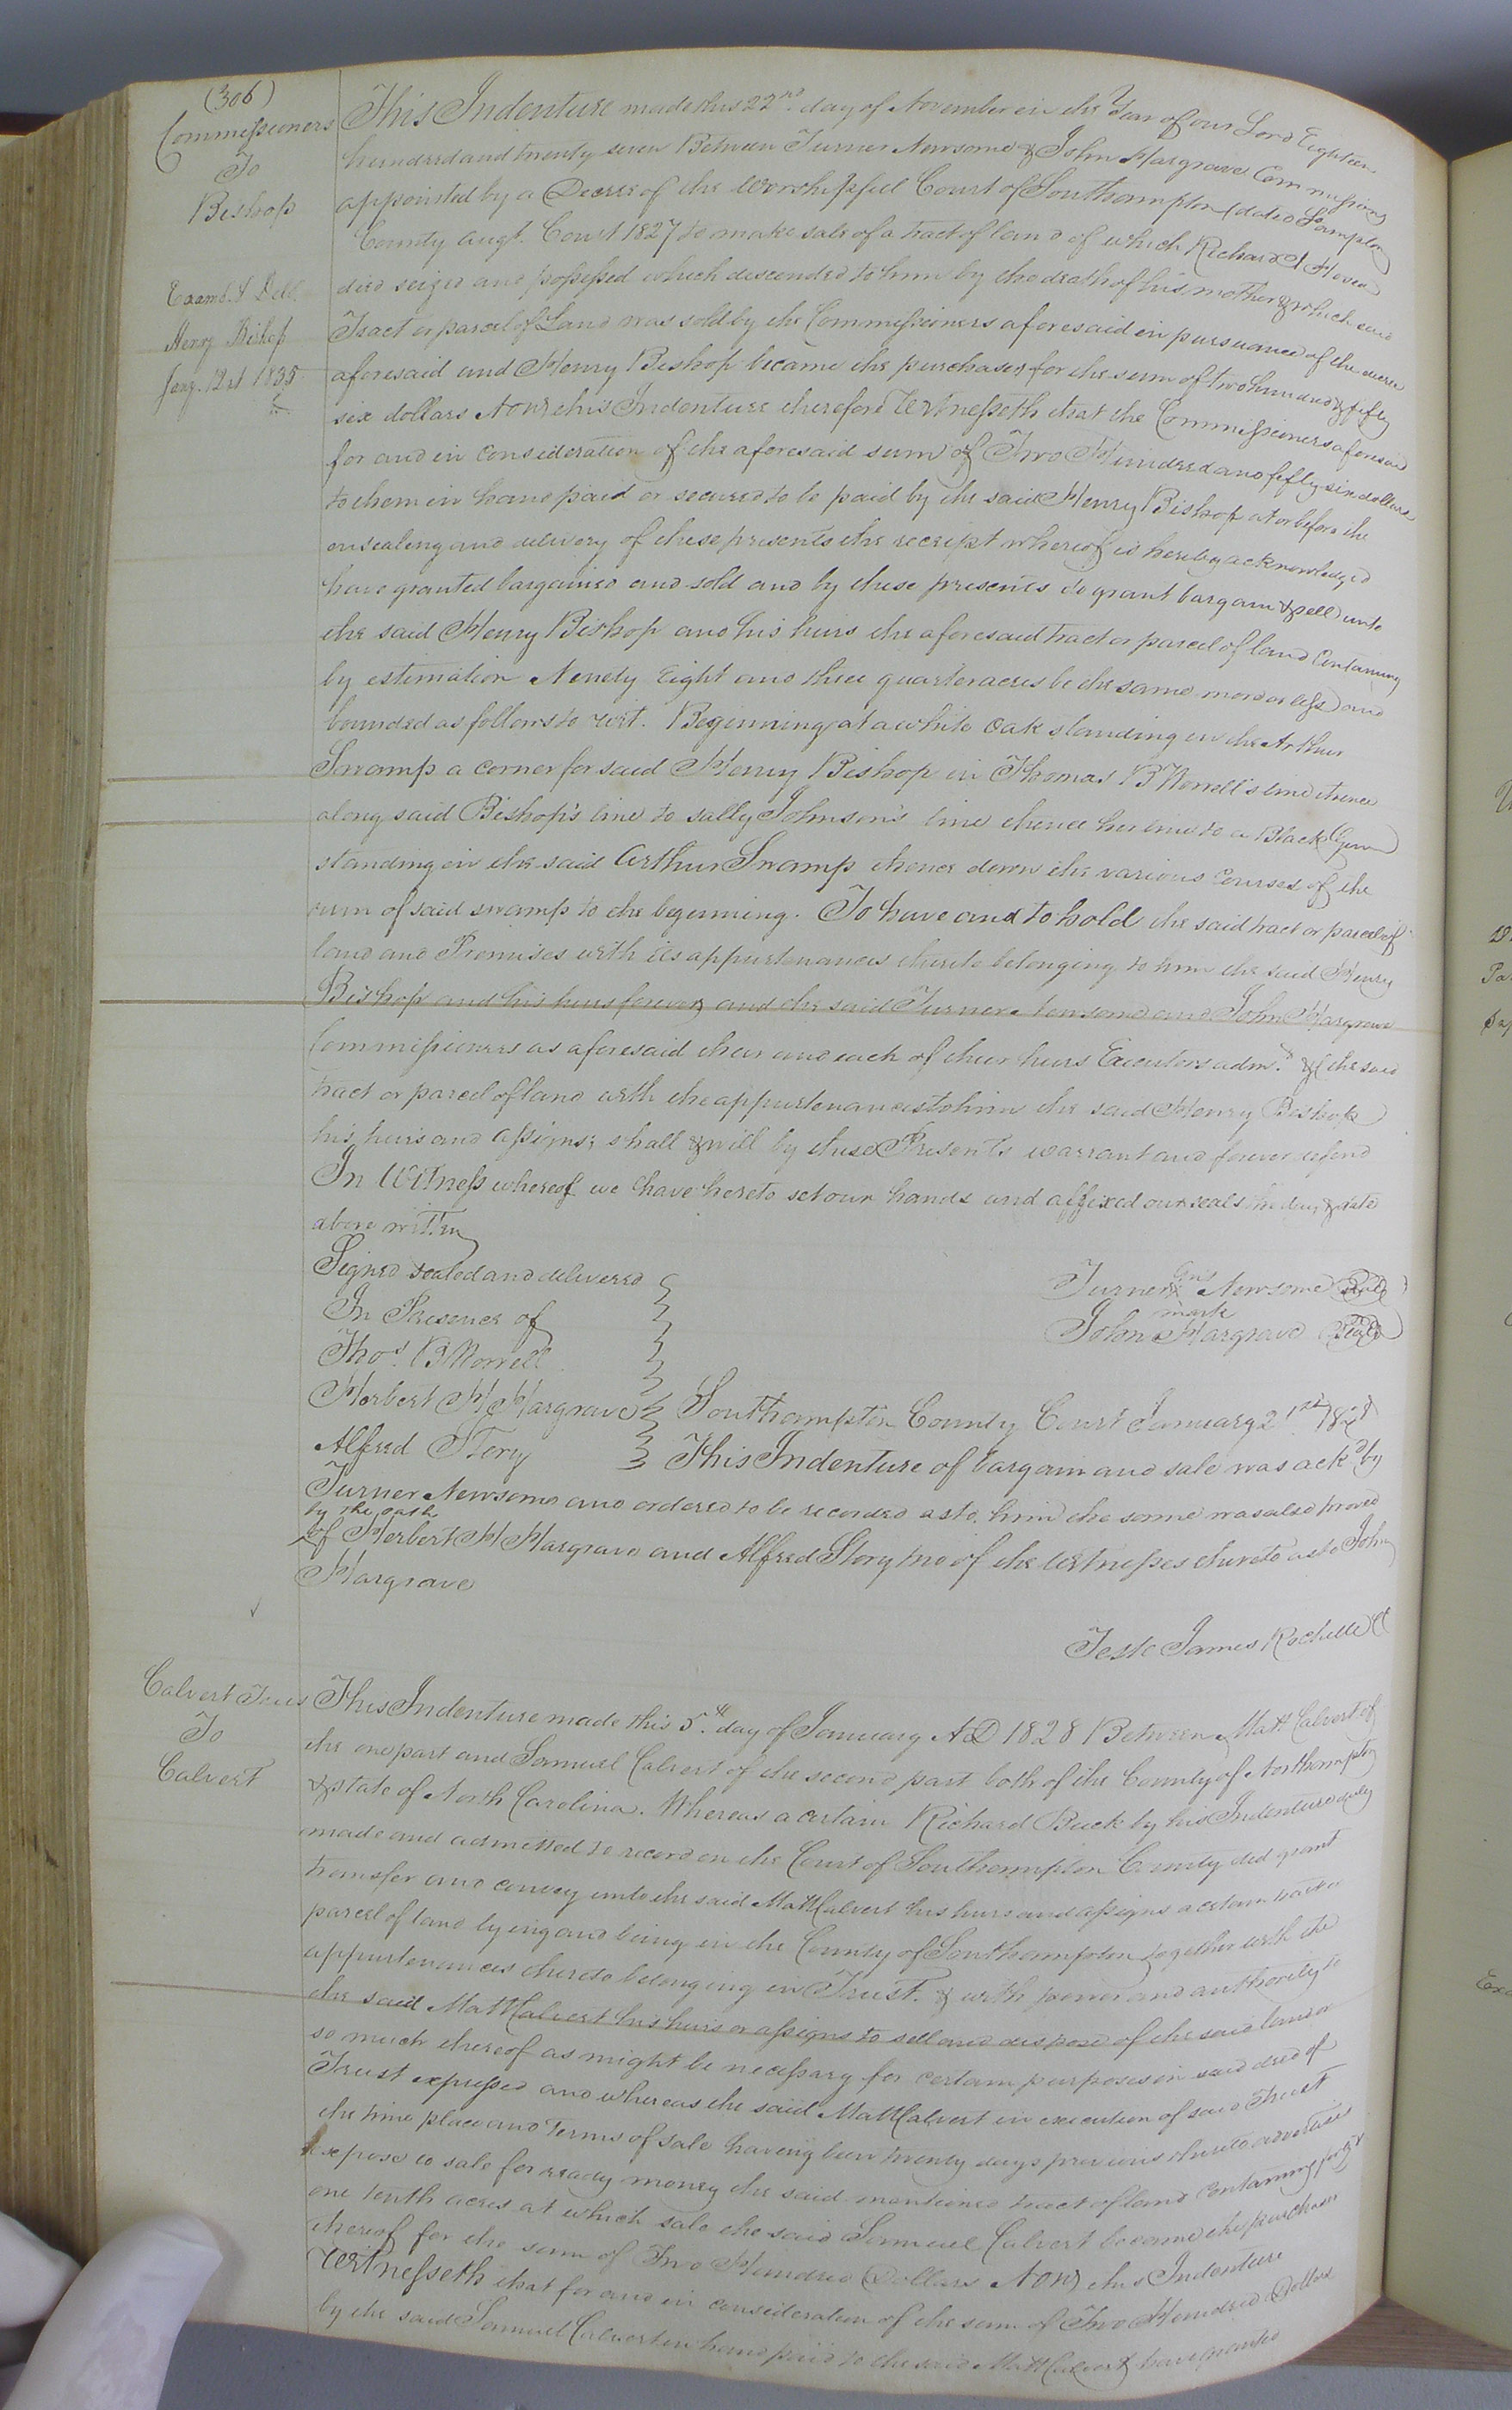 (306)
Commissioners
To
Bishop
Examd. & Deld.
Henry Bishop
Jany. 12th 1835
This Indenture made this 22nd day of November in the Year of our Lord Eighteen
hundred and twenty seven Between Turner Newsome & John Hargrave Commissioners
appointed by a Decree of the Worshipful Court of Southampton (dated Sampton
County Augt. Court 1827 to make sale of a tract of land of which Richard
died seized and possessed which descended to him by the death of his mother & which said
Tract or parcel of Land was sold by the Commissioners aforesaid in pursuance of the decree
aforesaid and Henry Bishop became the purchaser for the sum of two hundred & fifty
six dollars Now this Indenture therefore Witnesseth that the Commissioners aforesaid
for and in consideration of the aforesaid sum of Two Hundred and fifty six dollars
to them in hand paid or secured to be paid by the said Henry Bishop at or before the
ensealing and delivery of these presents the receipt whereof is hereby acknowledged
have granted bargained and sold and by these presents do grant bargain & sell unto
the said Henry Bishop and his heirs the aforesaid tract or parcel of land Containing
by estimation Ninety Eight and three quarter acres be the same more or less and
bounded as follows to wit. Beginning at a white oak standing in the Arthur
Swamp a corner for said Henry Bishop in Thomas B Worrell's line thence
along said Bishop's line to Sally Johnson's line thence her line to a Black Gum
standing in the said Arthur Swamp thence down the various Courses of the
run of said swamp to the beginning. To have and to hold the said tract or parcel of
land and Premises with its appurtenances thereto belonging to him the said Henry
Bishop and his heirs forever, and the said Turner Newsome and John Hargrave
Commissioners as aforesaid their and each of their heirs Executors admrs. &c the said
tract or parcel of land with the appurtenances to him the said Henry Bishop
his heirs and assigns, shall & will by these Presents warrant and forever defend
In Witness whereof we have hereto set our hands and affixed our seals the day & date
above written
Signed sealed and delivered
In Presence of
Thos. B Worrell
Herbert H Hargrave
Alfred Story
Turner his x mark Newsome Seal
John Hargrave Seal
Southampton County Court January 21st 1828
This Indenture of bargain and sale was ackd by
Turner Newsome and ordered to be recorded as to him the same was also proved
by the oath
of Herbert H Hargrave and Alfred Story two of the Witnesses thereto as to John
Hargrave
Teste James Rochelle C
Calvert Trus
To
Calvert
This Indenture made this 5th day of January AD 1828 Between Matt Calvert of
the one part and Samuel Calvert of the second part both of the County of Northampton
& state of North Carolina. Whereas a certain Richard Buck by his Indenture duly
made and admitted to record in the Court of Southampton County did grant
transfer and convey unto the said Matt Calvert his heirs and assigns a certain tract or
parcel of land lying and being in the County of Southampton together with the
appurtenances thereto belonging in Trust. & with power and authority to
the said Matt Calvert his heirs or assigns to sell and dispose of the said land or
so much thereof as might be necessary for certain purposes in said deed of
Trust expressed and whereas the said Matt Calvert in execution of said Trust
the time place and Terms of sale having been twenty days previous thereto advertised
expose to sale for ready money the said mentioned tract of land containing forty &
one tenth acres at which sale the said Samuel Calvert became the purchaser
thereof for the sum of Two Hundred Dollars Now this Indenture
Witnesseth that for and in consideration of the sum of Two Hundred Dollars
by the said Samuel Calvert in hand paid to the said Matt Calvert have granted